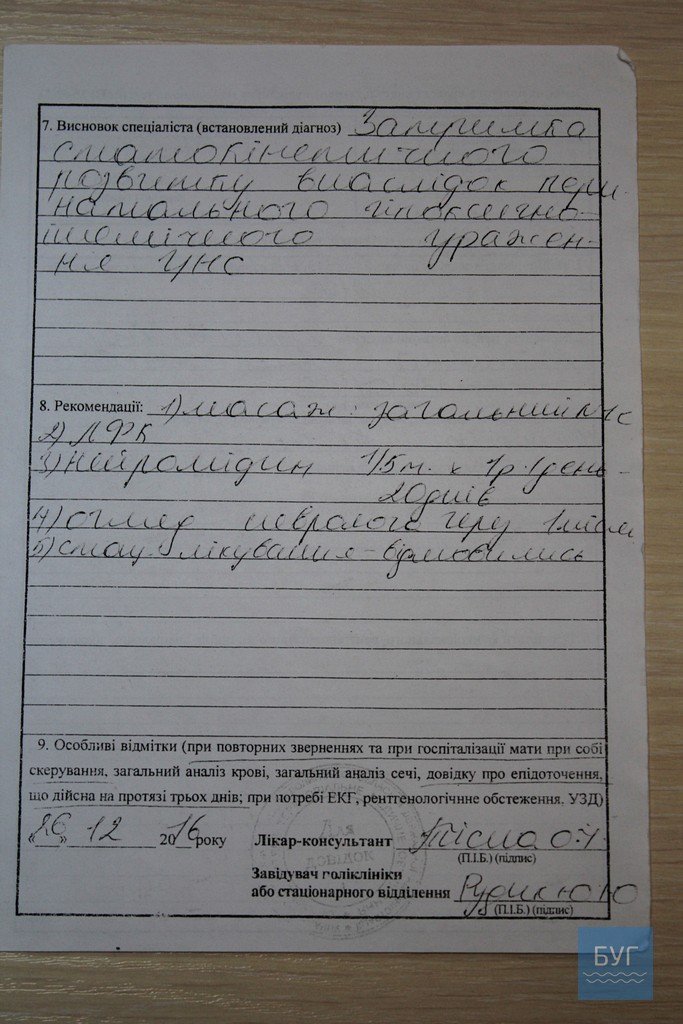 7. Висновок спеціаліста (встановлений діагноз) Затримка
статокінетичного
розвитку внаслідок пери-
натального гіпоксично-
ішемічного уражен-
ня ЦНС
8. Рекомендації: 1) масаж: загальний №15
2) ЛФК
3) нейромідин 1/5 т. х 1 р./день -
20 днів
4) огляд невролога через 1 місяць
5) стац. лікування - відмовились
9. Особливі відмітки (при повторних зверненнях та при госпіталізації мати при собі
скерування, загальний аналіз крові, загальний аналіз сечі, довідку про епідоточення,
що дійсна на протязі трьох днів; при потребі ЕКГ, рентгенологічнне обстеження, УЗД)
"26" 12 2016 року Лікар-консультант
(П.І.Б.) (підпис)
Завідувач поліклініки
або стаціонарного відділення Рудик Ю Ю
(П.І.Б.) (підпис)
Для
довідок
БУГ